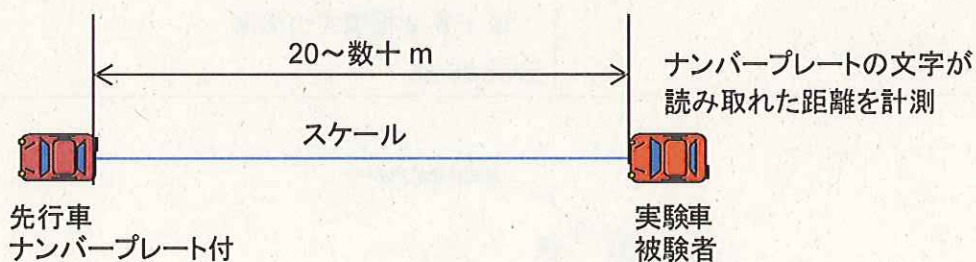 20～数十 m
ナンバープレートの文字が
読み取れた距離を計測
スケール
先行車
ナンバープレート付
実験車
被験者